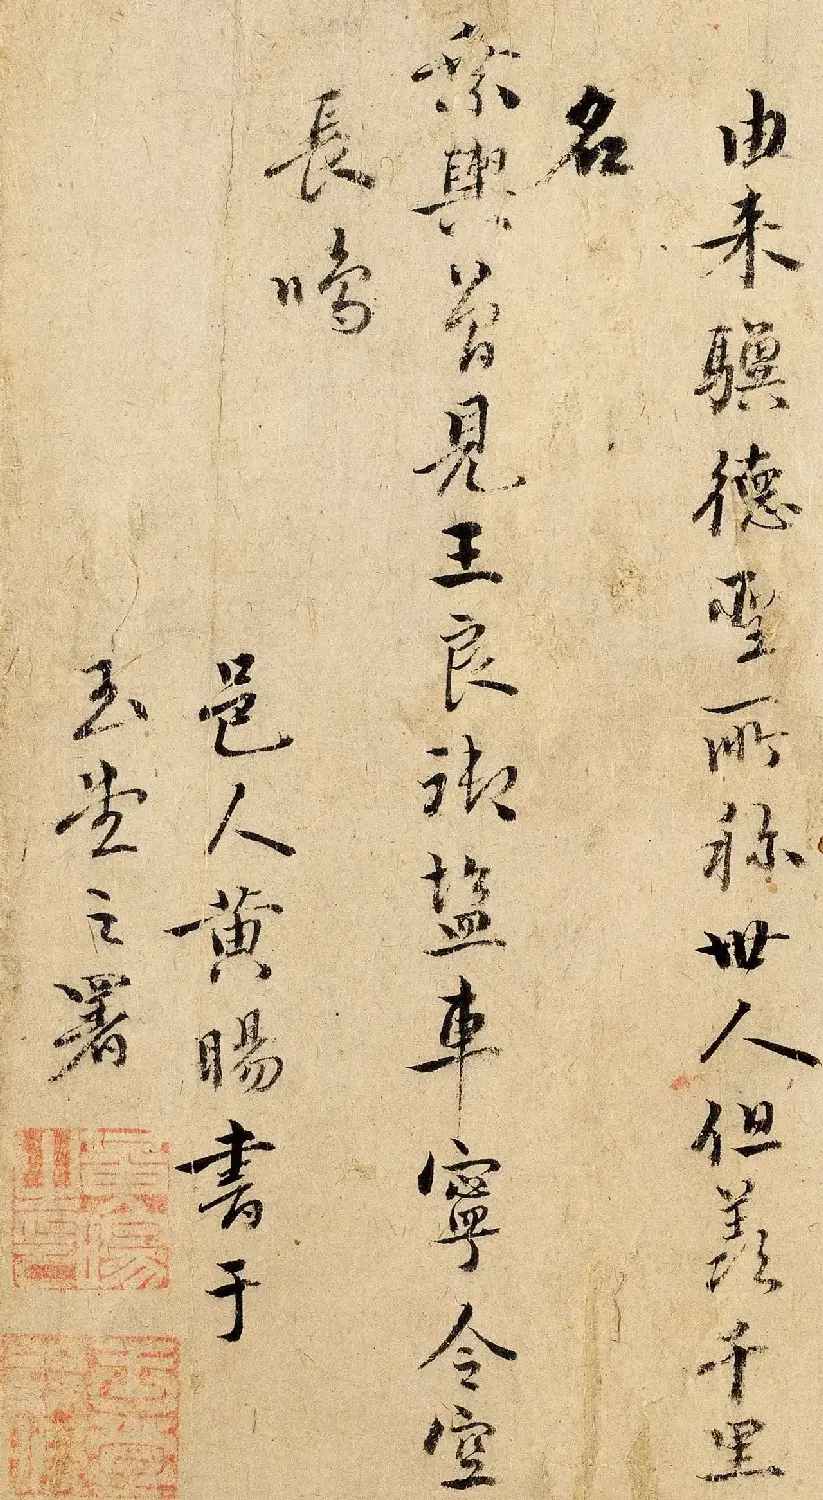 由来驥德聖所称世人但羨千里
名
乘輿曾見王良御塩車寧令空
長鳴
邑人黄暘書于
玉堂之署